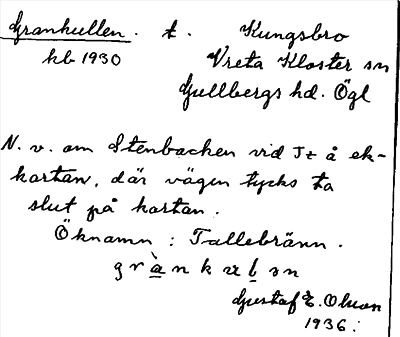 Grankullen. t. Kungsbro
kb 1930 Vreta Kloster sn
Gullbergs hd. Ögl
N. v. om Stenbacken vid Tt å ek-
kartan, där vägen tycks ta
slut på kartan.
Öknamn : Tallebränn.
Gustaf E. Olson
1936.